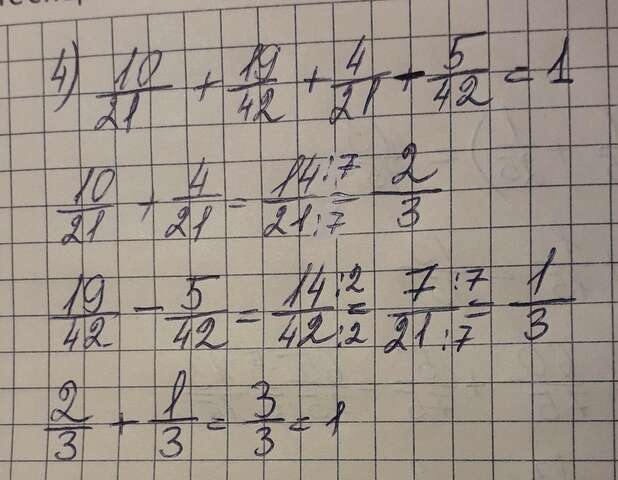 4) 10/21 + 19/42 + 4/21 - 5/42 = 1
10/21 + 4/21 = 14:7/21:7 = 2/3
19/42 - 5/42 = 14:2/42:2 = 7:7/21:7 = 1/3
2/3 + 1/3 = 3/3 = 1